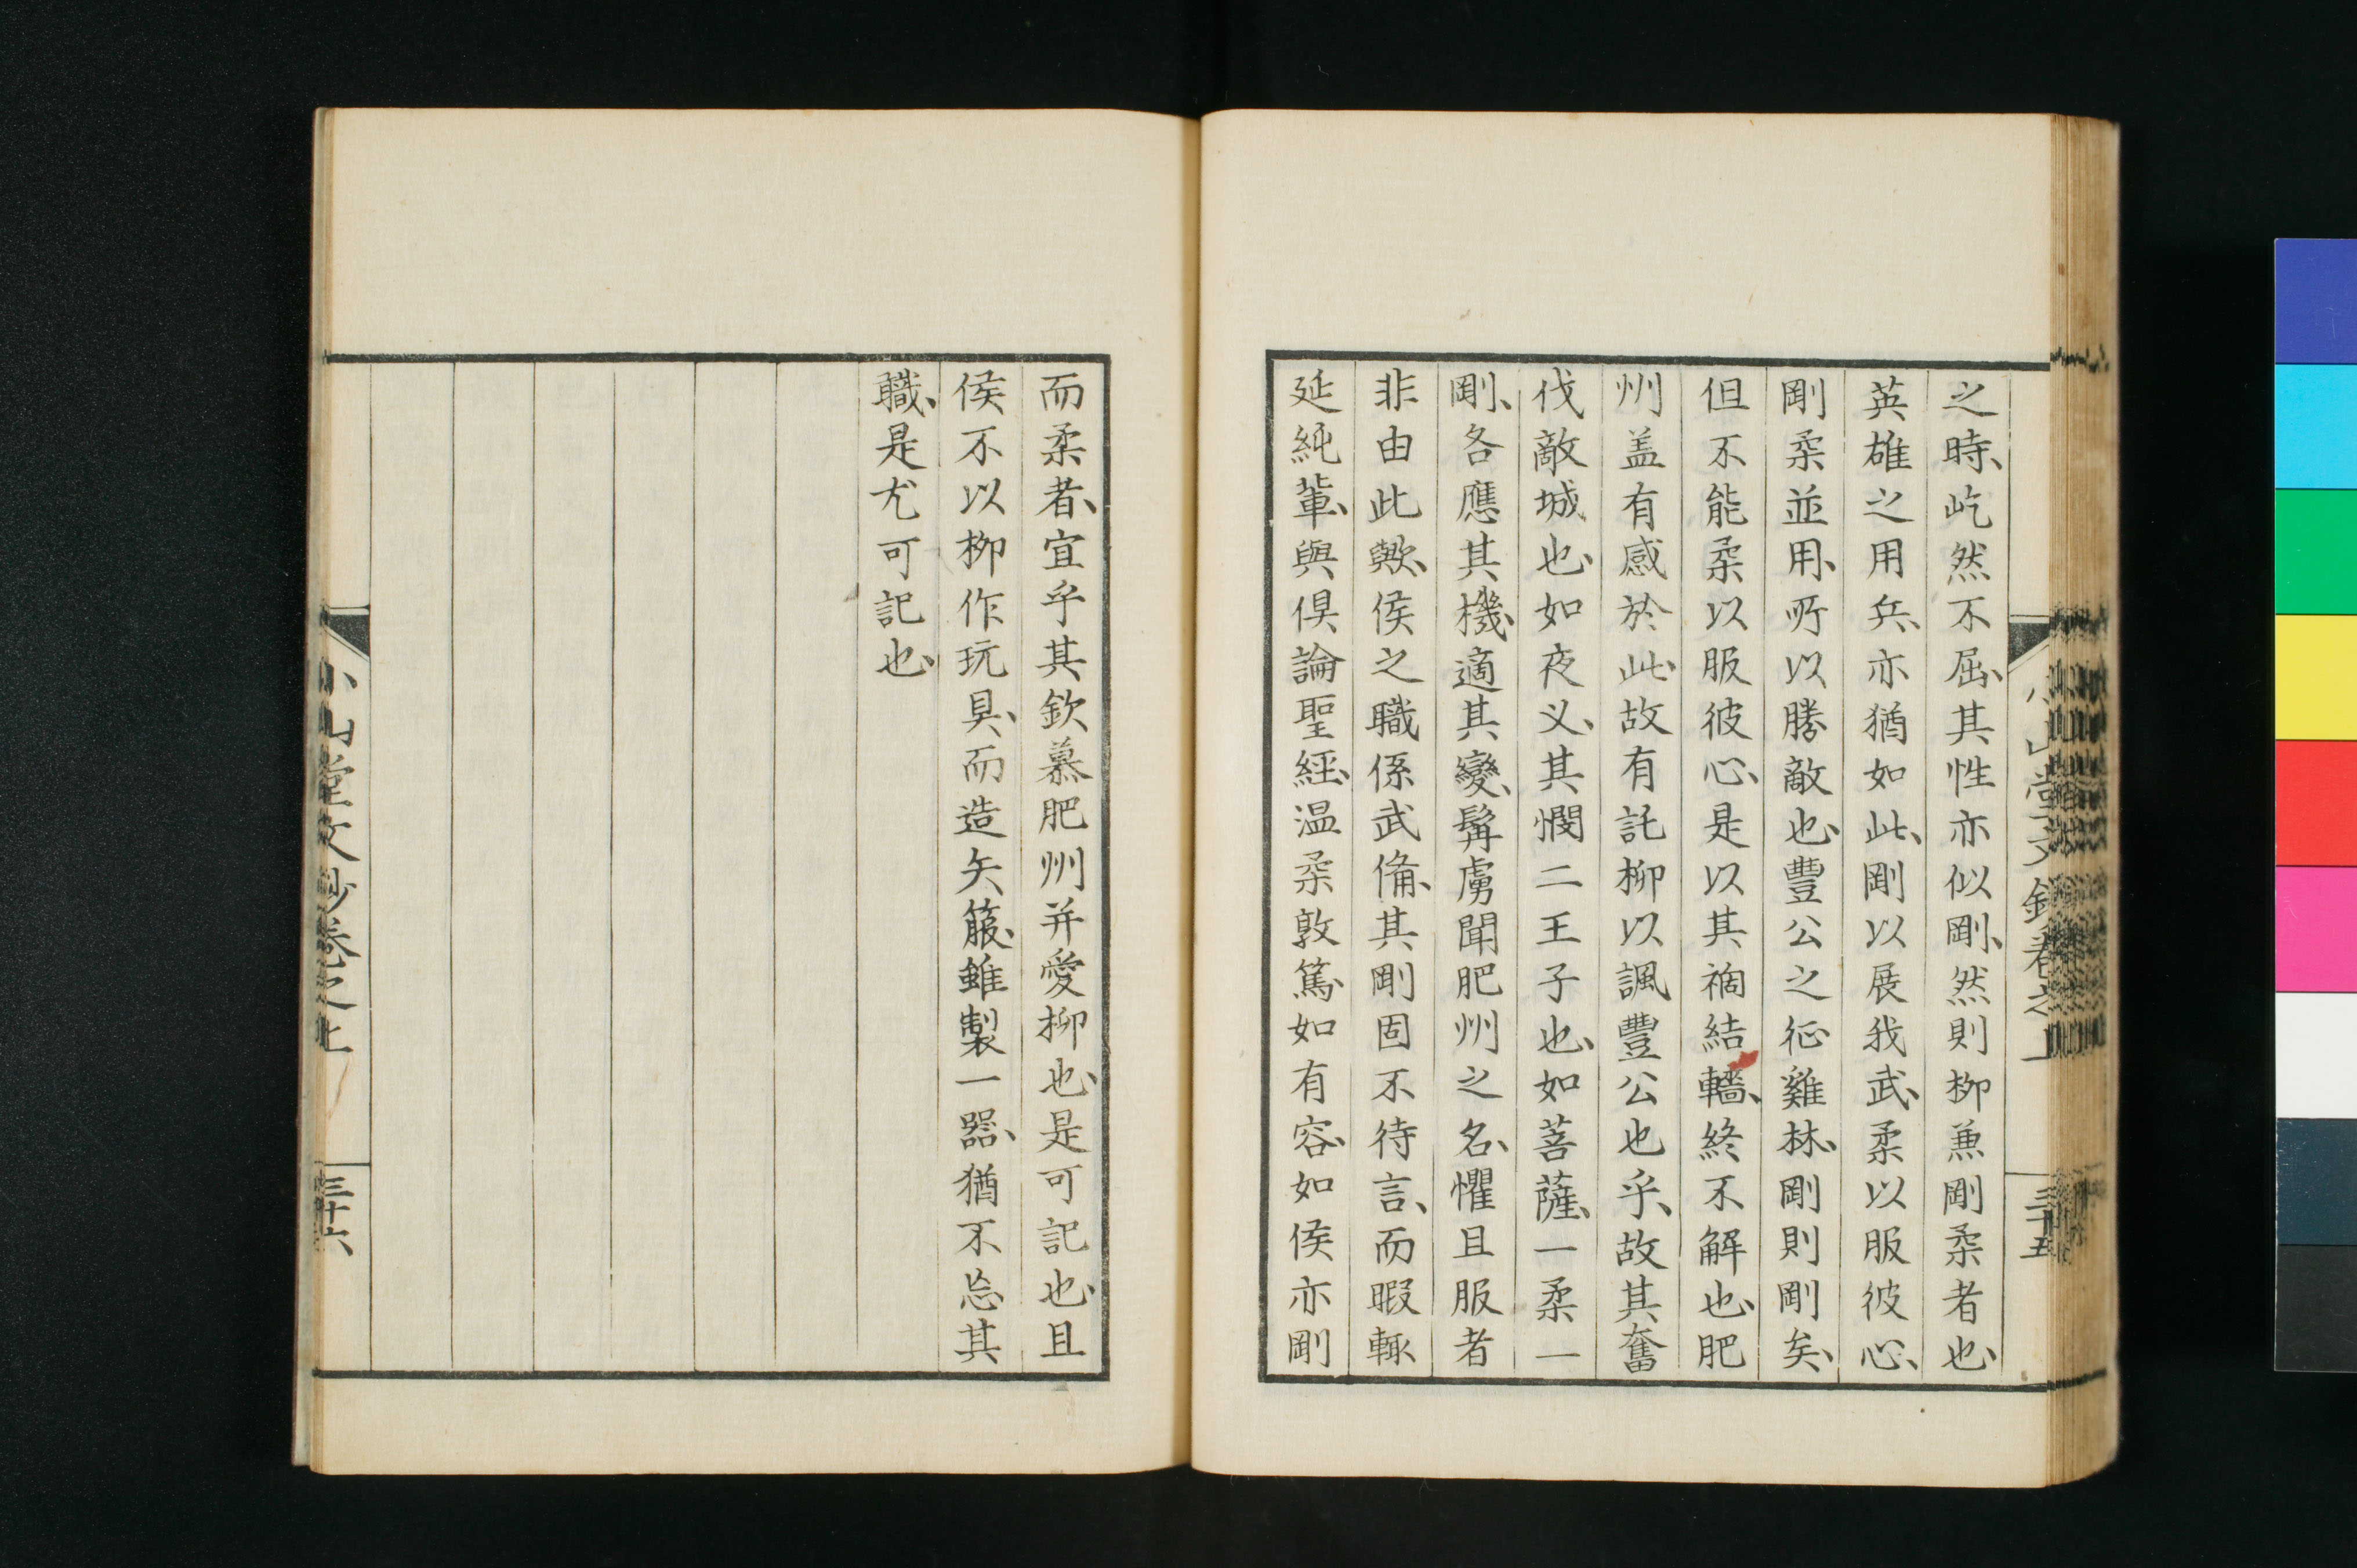 之時、屹然不屈、其性亦似剛、然則柳兼剛柔者也、
英雄之用兵、亦猶如此、剛以展我武、柔以服彼心、
剛柔並用、所以勝敵也、豐公之征雞林、剛則剛矣、
但不能柔以服彼心、是以其禍結轖、終不解也、肥
州盖有感於此、故有託柳以諷豐公也乎、故其奮
伐敵城也、如夜乂、其憫二王子也、如菩薩、一柔一
剛、各應其機、適其變、髯虜聞肥州之名、懼且服者
非由此歟、侯之職係武偹、其剛固不待言、而暇輙
延純軰、與俱論聖經、温柔敦篤、如有容、如侯亦剛
小山堂文鈔卷之上
三十五
而柔者、宜乎其欽慕肥州并愛柳也、是可記也、且
侯不以柳作玩具、而造矢箙、雖製一器、猶不忘其
職、是尤可記也、
小山堂文鈔卷之上
三十六